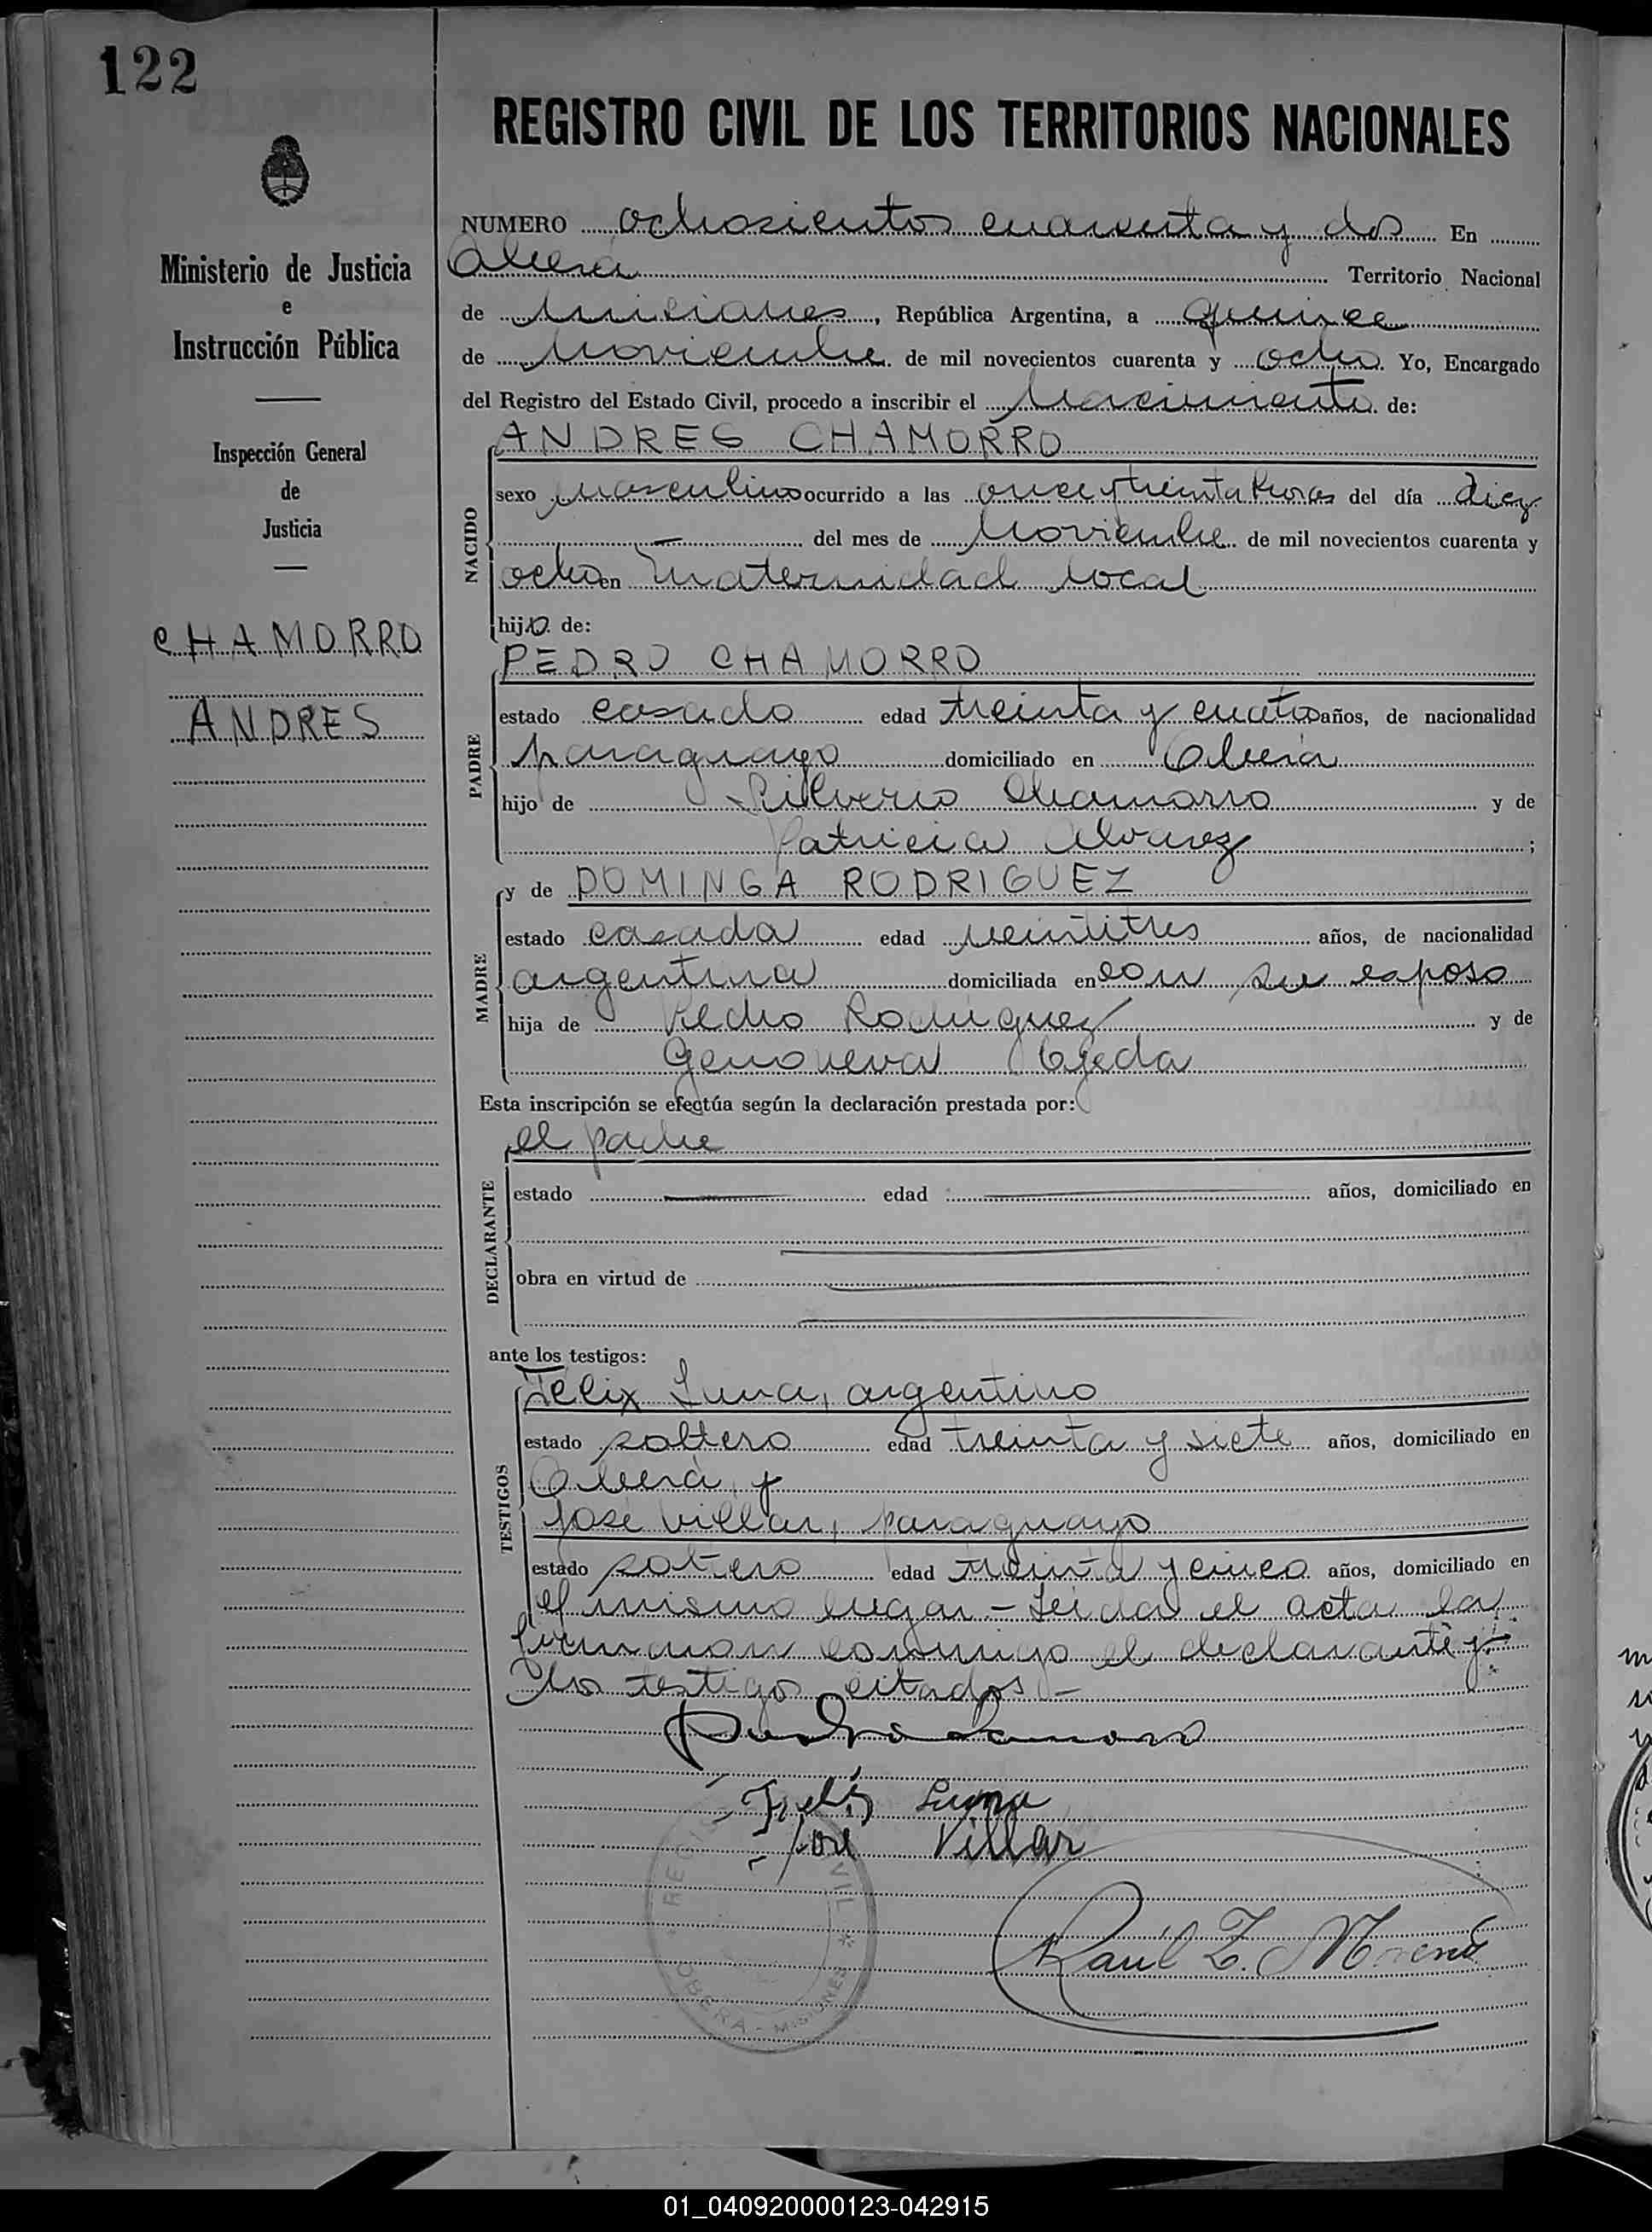 122
REGISTRO CIVIL DE LOS TERRITORIOS NACIONALES
Ministerio de Justicia
e
Instrucción Pública
Inspección General
de
Justicia
CHAMORRO
ANDRES
NUMERO ochosientos cuarenta y dos En
Oberá Territorio Nacional
de Misiones, República Argentina, a quince
de Noviembre de mil novecientos cuarenta y ocho. Yo, Encargado
del Registro del Estado Civil, procedo a inscribir el Nacimiento de:
ANDRES CHAMORRO
NACIDO
sexo masculino ocurrido a las once y treinta horas del día diez
del mes de Noviembre de mil novecientos cuarenta y
ocho en Maternidad local
hijo de:
PEDRO CHAMORRO
PADRE
estado casado edad treinta y cuatro años, de nacionalidad
paraguayo domiciliado en Oberá
hijo de Silverio Chamorro y de
Patricia Alvarez ;
y de DOMINGA RODRIGUEZ
MADRE
estado casada edad veintitres años, de nacionalidad
argentina domiciliada en con su esposo
hija de Pedro Rodriguez y de
Genoveva Ojeda
Esta inscripción se efectúa según la declaración prestada por:
el padre
DECLARANTE
estado edad años, domiciliado en
obra en virtud de
ante los testigos:
TESTIGOS
Félix Luna, argentino
estado soltero edad treinta y siete años, domiciliado en
Oberá y
José Villar, paraguayo
estado soltero edad treinta y cinco años, domiciliado en
el mismo lugar - Leida el acta la
firmaron conmigo el declarante y
los testigos citados -
Felix Luna
José Villar
REGISTRO CIVIL * OBERA - MISIONES *
Raúl Z. Moreno
01_040920000123-042915